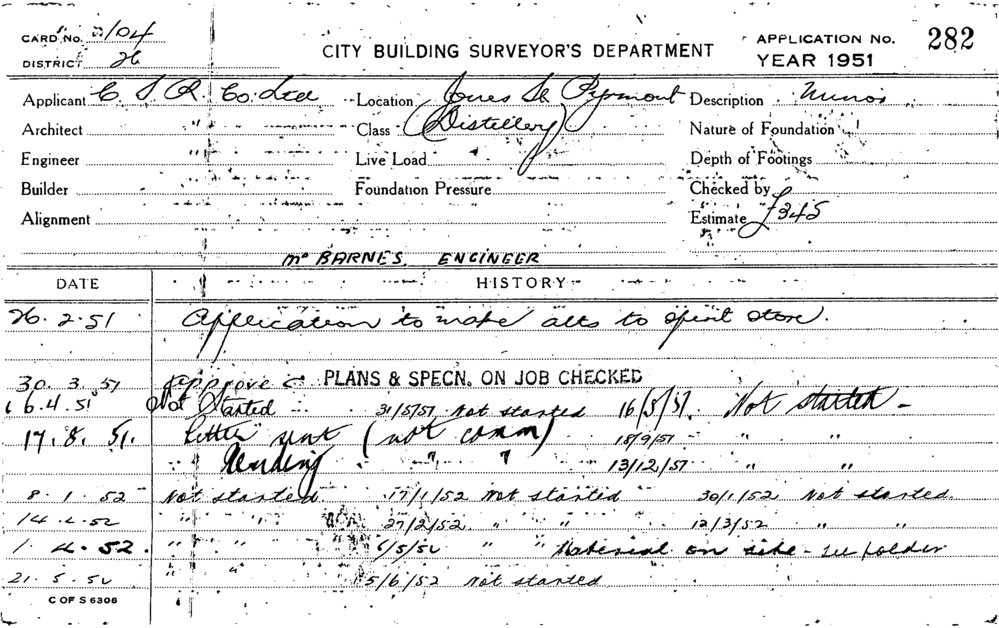 CARD No. 2/04
DISTRICT 26
CITY BUILDING SURVEYOR'S DEPARTMENT
APPLICATION No. 282
YEAR 1951
Applicant C S R Co. Ltd Location Jones St Pyrmont Description Minor
Architect " Class (Distillery) Nature of Foundation
Engineer " Live Load Depth of Footings
Builder Foundation Pressure Checked by
Alignment Estimate £345
Mr BARNES. ENGINEER
DATE HISTORY
26. 2. 51 Application to make alts to spirit store.
30. 3. 51 Approved PLANS & SPECN. ON JOB CHECKED
6. 4. 51 Not Started 31/5/51 Not started 16/5/51. Not started -
17. 8. 51. Letter sent (not comm) 18/9/51 " "
Pending " " 13/12/51 " "
8. 1. 52 Not started. 17/1/52 Not started 30/1/52 Not started.
14. 2. 52 " " 27/2/52 " " 12/3/52 " "
1. 4. 52. " " 6/5/52 " " Material on site - see folder
21. 5. 52 " " 5/6/52 Not started
C OF S 6306